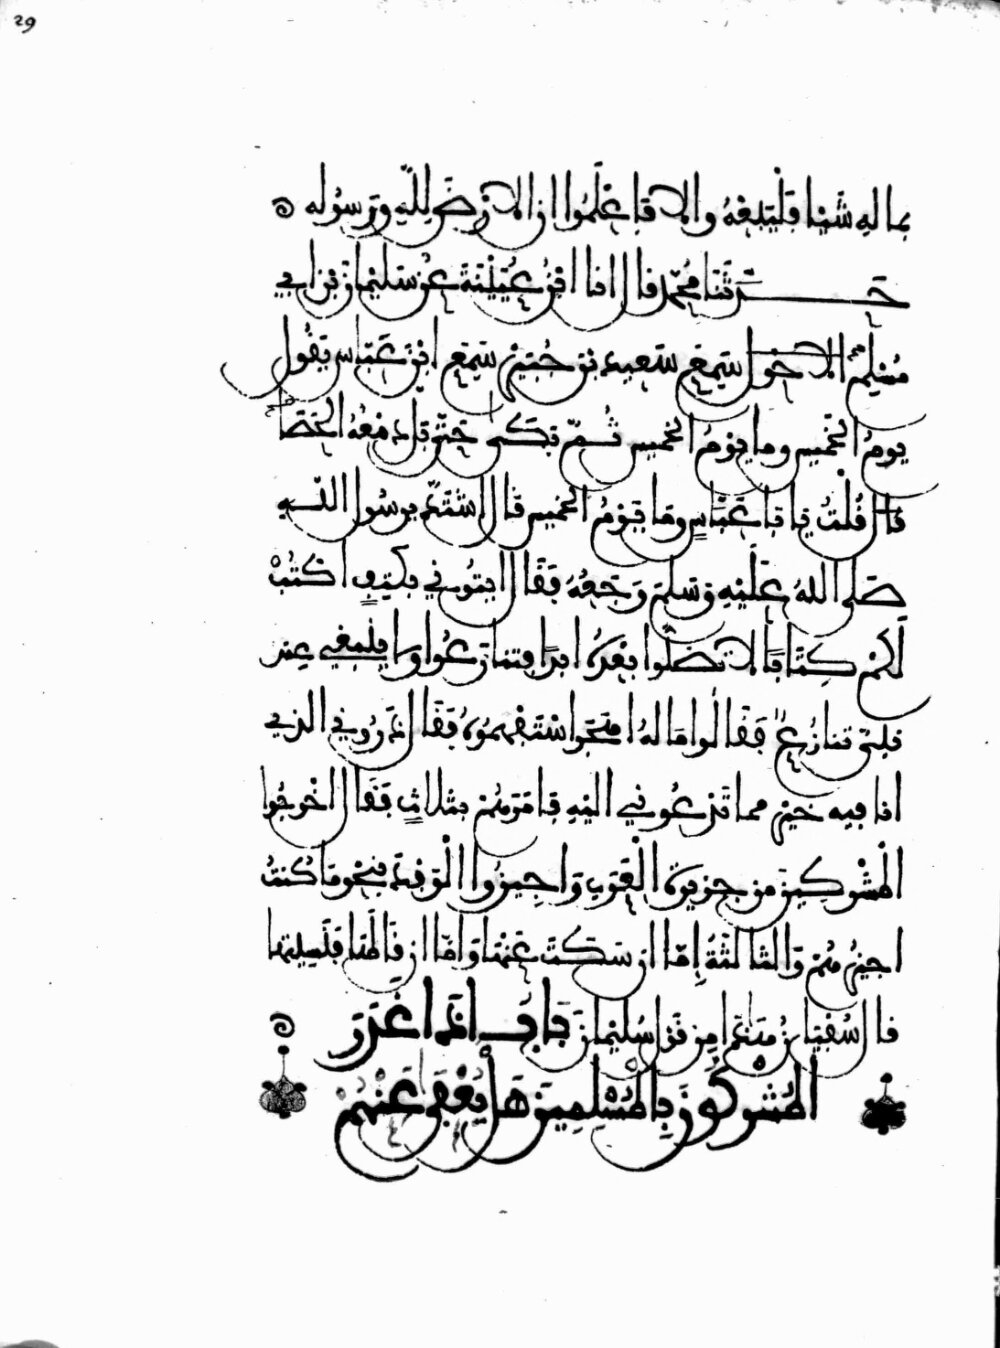 29
بماله شيئا فليبعه والا فاعلموا ان الارض لله ورسوله
حدثنا محمد قال انا ابن عيينة عن سليمان بن ابي
مسلم الاحول سمع سعيد بن جبير سمع ابن عباس يقول
يوم الخميس وما يوم الخميس ثم بكى حتى بل دمعه الحصا
قال قلت يا با عباس وما يوم الخميس قال اشتد برسول الله
صلى الله عليه وسلم وجعه فقال ايتوني بكتف اكتب
لكم كتابا لا تضلوا بعده ابدا فتنازعوا ولا ينبغي عند
نبي تنازع فقالوا ما له اهجر استفهموه فقال ذروني الذي
انا فيه خير مما تدعوني اليه فامرهم بثلاث فقال اخرجوا
المشركين من جزيرة العرب واجيزوا الوفد بنحو ما كنت
اجيزهم والثالثة إما ان سكت عنها واما ان قالها فنسيتها
قال سفيان هذا من قول سليمان باب اذا غدر
المشركون بالمسلمين هل يعفى عنهم